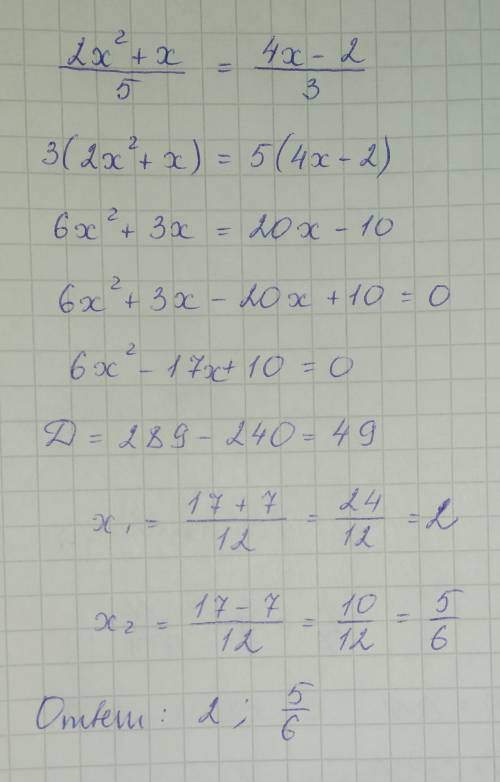 (2x² + x)/5 = (4x - 2)/3
3(2x² + x) = 5(4x - 2)
6x² + 3x = 20x - 10
6x² + 3x - 20x + 10 = 0
6x² - 17x + 10 = 0
Д = 289 - 240 = 49
x₁ = (17 + 7)/12 = 24/12 = 2
x₂ = (17 - 7)/12 = 10/12 = 5/6
Ответ: 2; 5/6